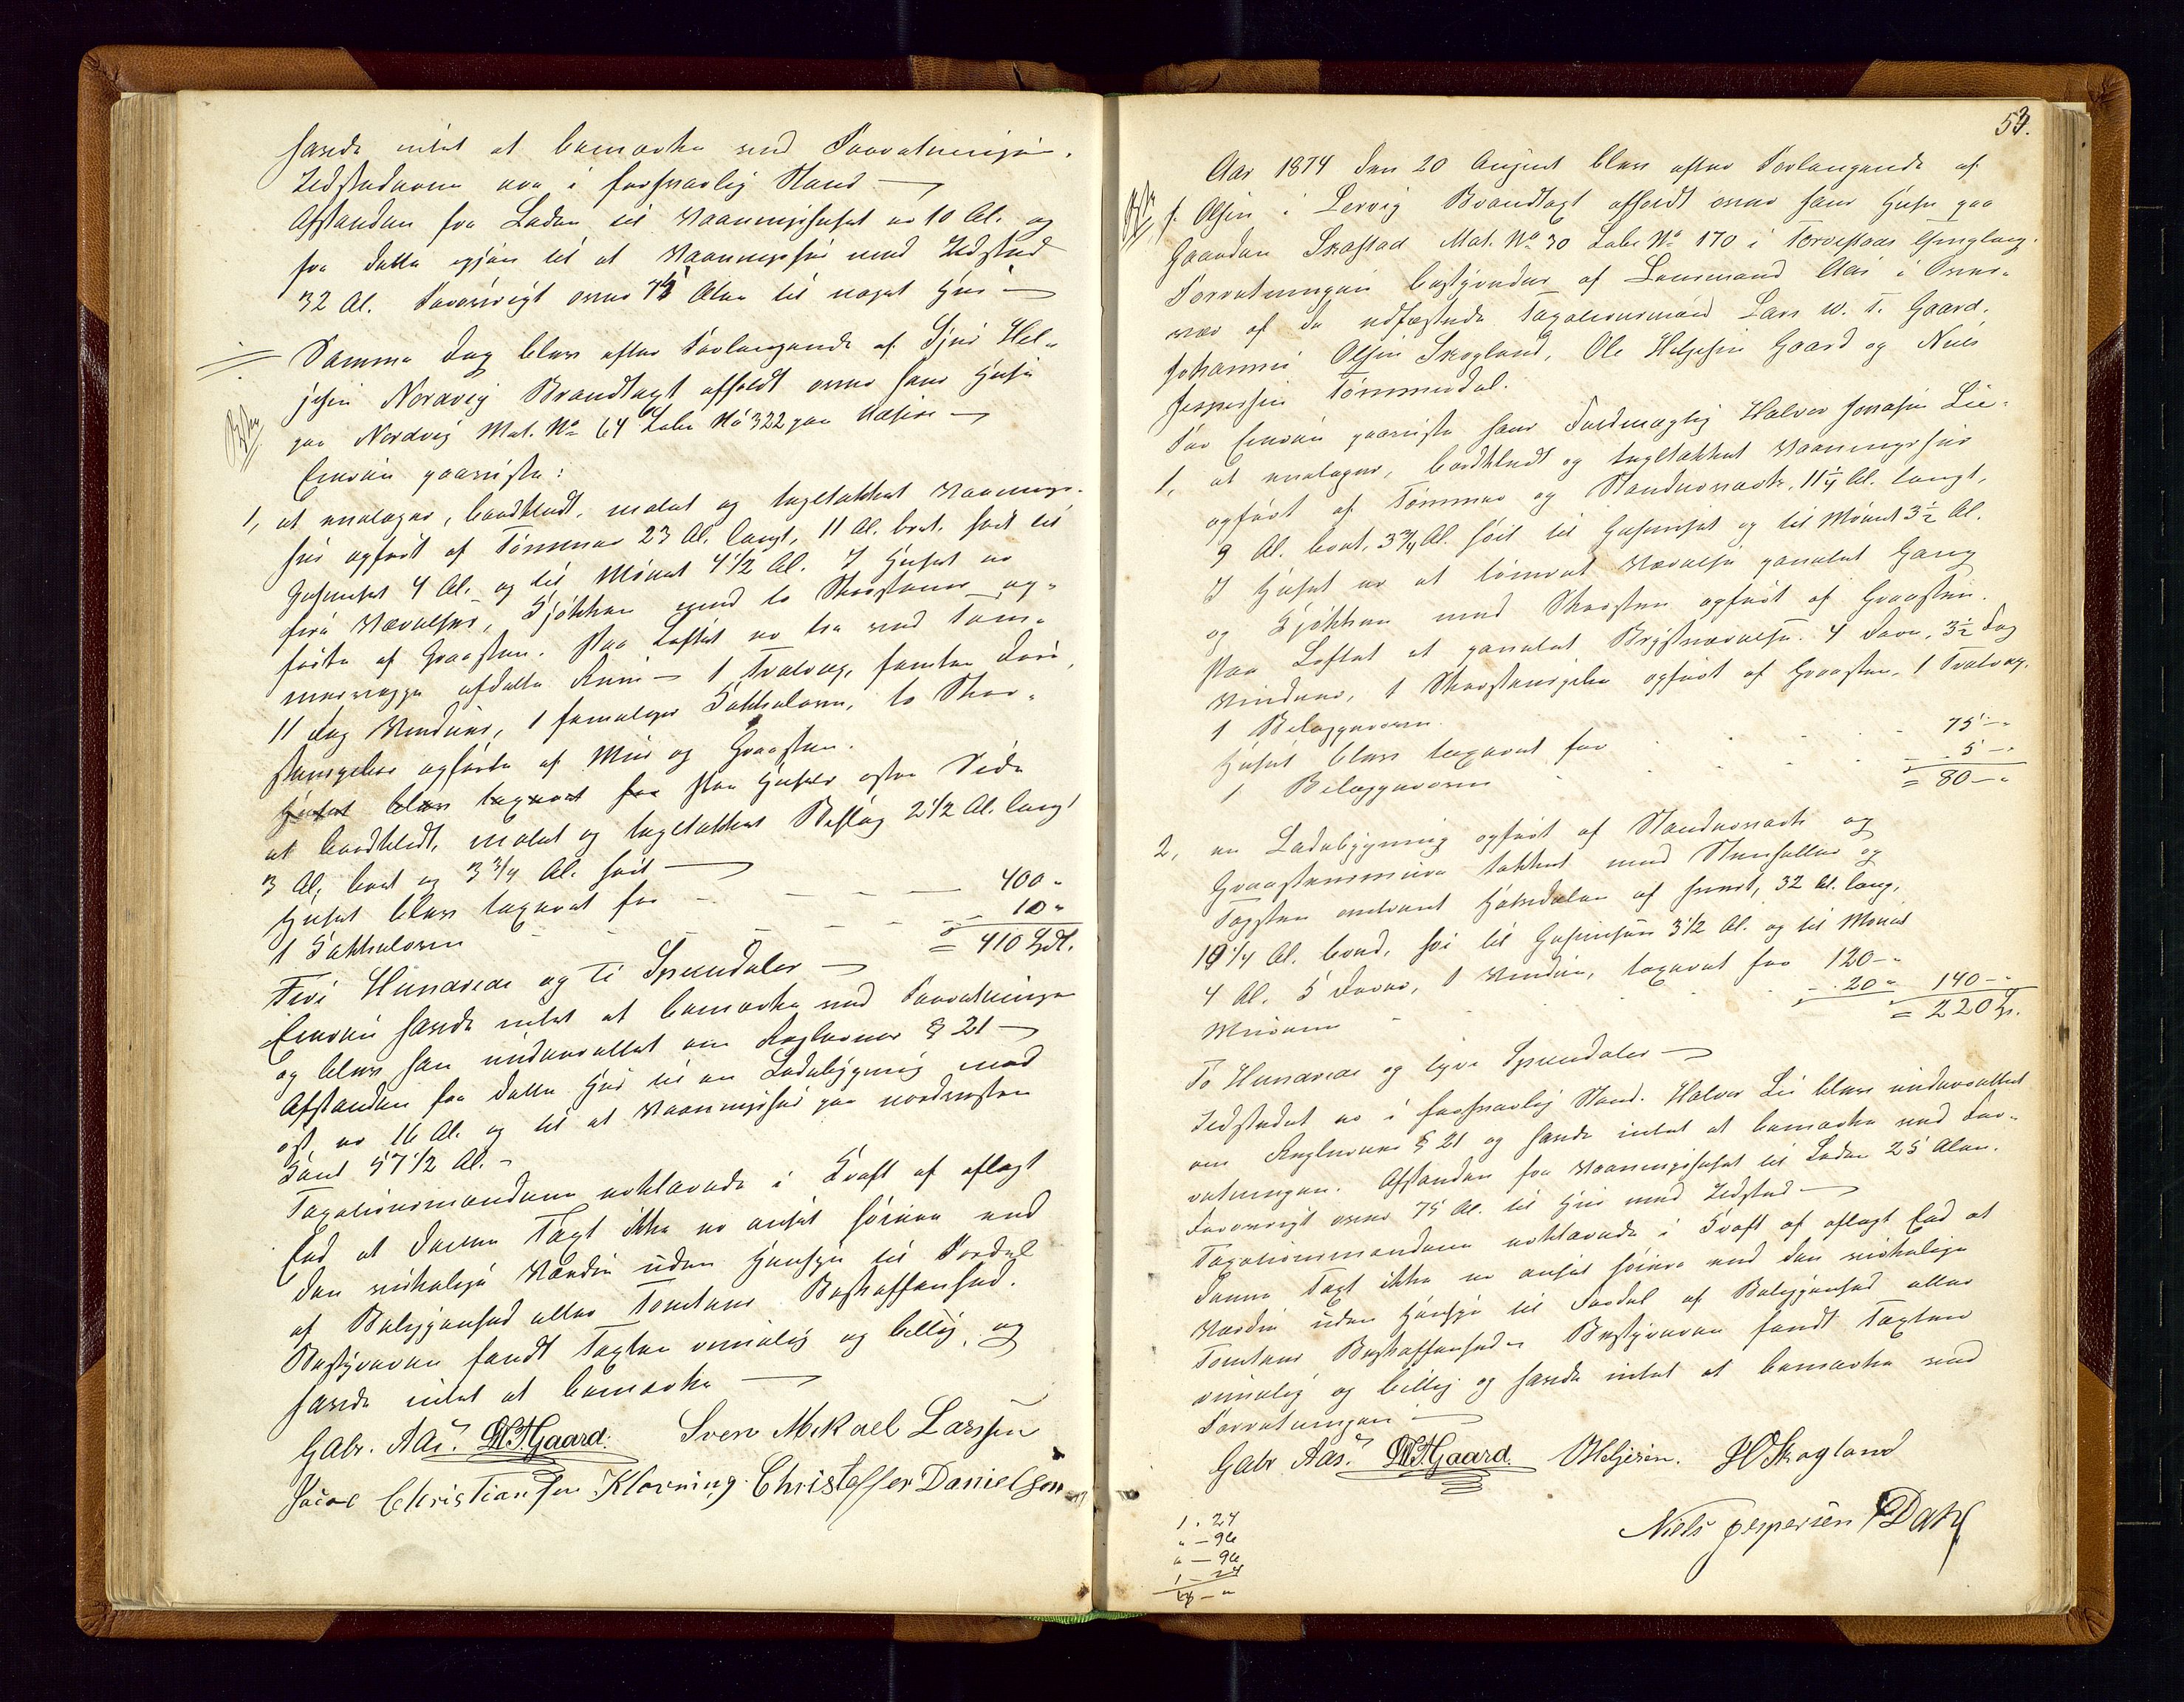 havde intet at bemærke ved Forretningen.
Ildstederne ere i forsvarlig Stand —
Afstanden fra Laden til Vaaningshuset er 10 Al. og
fra dette igjen til et Vaaningshus med Ildsted
32 Al. Forøvrigt over 75 Alen til noget Hus —
Samme Dag blev efter Forlangende af Sjur Hel-
jesen Nordvig Brandtaxt afholdt over hans Huse
paa Nordvig Mat. No 64 Løbe No 322 paa
Eieren paaviste:
1, et enetages, bordklædt, malet og tegltækket Vaanings-
hus opført af Tømmer 23 Al. langt, 11 Al. bret. høit til
Gesimset 4 Al. og til Mønet 4 1/2 Al. I Huset er
fire Værelser, Kjøkken med to Skorstene op-
førte af Graasten. Paa Loftet er tre ved Tøm-
mervægge afdelte Rum — 1 Trætrap, femten Døre,
11 Fag Vinduer, 1 Kakkelovn, to Skor-
stenspiber opførte af Mur og Graasten.
Huset blev taxeret for Paa Husets østre Side
et bordklædt, malet og tegltækket Bislag 2 1/2 Al. langt
3 Al. bret og 3 3/4 Al. høit —
Huset blev taxeret for — — — 400 "
1 Kakkelovn — — — 10 "
= 410 Spdl.
Fire Hundrede og Ti Speciedaler —
Eieren havde intet at bemærke ved Forretningen
og blev han underrettet om Reglernes § 21 —
Afstanden fra dette Hus til en Ladebygning mod
øst er 16 Al. og til et Vaaningshus paa nordvestre
Kant 57 1/2 Al. —
Taxationsmændene erklærede i Kraft af aflagt
Eed at denne Taxt ikke er ansat høiere end
den virkelige Værdie uden Hensyn til Fordel
af Beliggenhed eller Tomtens Beskaffenhed.
Bestyreren fandt Taxten rimelig og billig, og
havde intet at bemærke —
Gabr. Aas. LWTGaard. Sven Mikael Larssen
Jacob Christiansen Klovning. Christoffer Danielsen
53.
Aar 1874 den 20 August blev efter Forlangende af
J. Olsen i Lervig Brandtaxt afholdt over hans Huse paa
Gaarden Skaftad Mat. No 30 Løbe No 170 i Torvestads Thinglaug.
Forretningen bestyredes af Lensmand Aas i Over-
vær af de udfæstede Taxationsmænd Lars W. T. Gaard,
Johannes Olsen Skogland, Ole Heljesen Gaard og Niels
Jespersen Tømmerdal.
For Eieren paaviste hans Fuldmægtig Halvor Jonasen Lie:
1, et enetages, bordklædt og tegltækket Vaaningshus
opført af Tømmer og Standerværk, 11 1/4 Al. langt,
9 Al. bret, 3 3/4 Al. høit til Gesimset og til Mønet 3 1/2 Al.
I Huset er et tømret Værelse panelet Gang
og Kjøkken med Skorsten opført af Graasten.
Paa Loftet et panelet Brystværelse. 4 Døre, 3 1/2 Fag
Vinduer, 1 Skorstenspibe opført af Graasten, 1 Trætrap,
1 Bilæggerovn.
Huset blev taxeret for . . . 75 — "
1 Bilæggerovn . . . 5 — "
= 80 — "
2, en Ladebygning opført af Standerværk og
Graastensmure tækket med Stenheller og
Tagsten omtrent Halvdelen af hvert, 32 Al. lang,
10 1/4 Al. bred, høi til Gesimsen 3 1/2 Al. og til Mønet
4 Al. 5 Døre, 1 Vindue, taxeret for 120 — "
Murene . . . 20 " 140 — "
= 220 Sp.
To Hundrede og tyve Speciedaler —
Ildstedet er i forsvarlig Stand. Halvor Lie blev underrettet
om Reglernes § 21 og havde intet at bemærke ved For-
retningen. Afstanden fra Vaaningshuset til Laden 25 Alen.
Forøvrigt over 75 Al. til Hus med Ildsted —
Taxationsmændene erklærede i Kraft af aflagt Eed at
denne Taxt ikke er ansat høiere end den virkelige
Værdie uden Hensyn til Fordel af Beliggenhed eller
Tomtens Beskaffenhed. Bestyreren fandt Taxten
rimelig og billig og havde intet at bemærke ved
Forretningen —
Gabr Aas. LWTGaard. OHeljesen. JOSkogland
Niels Jespersen Dahl
1 . 24
" — 96
" — 96
1 — 24